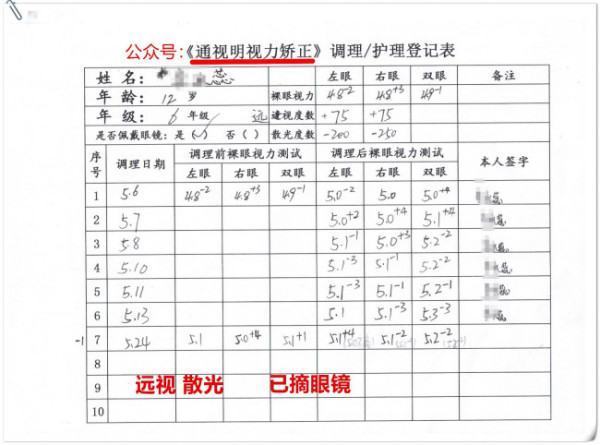 公众号:《通视明视力矫正》调理/护理登记表
姓名: 蕊 左眼 右眼 双眼 备注
年龄: 12 岁 裸眼视力 4.8-2 4.8+3 4.9-1
年级: 6 年级 远 遠视度数 +75 +75
是否佩戴眼镜: 是(✓) 否( ) 散光度数 -200 -250
序号 调理日期 调理前裸眼视力测试 调理后裸眼视力测试 本人签字
左眼 右眼 双眼 左眼 右眼 双眼
1 5.6 4.8-2 4.8+3 4.9-1 5.0-2 5.0 5.0+4
2 5.7 5.0+2 5.0+4 5.1+4
3 5.8 5.1-1 5.0+3 5.2-2
4 5.10 5.1-3 5.1-1 5.2-2
5 5.11 5.1-3 5.1-1 5.2-1
6 5.13 5.1 5.1-3 5.3-3
-1 7 5.24 5.1 5.0+4 5.1+1 5.1+4 5.1-2 5.2-2
8
9 远视 散光 已摘眼镜
10